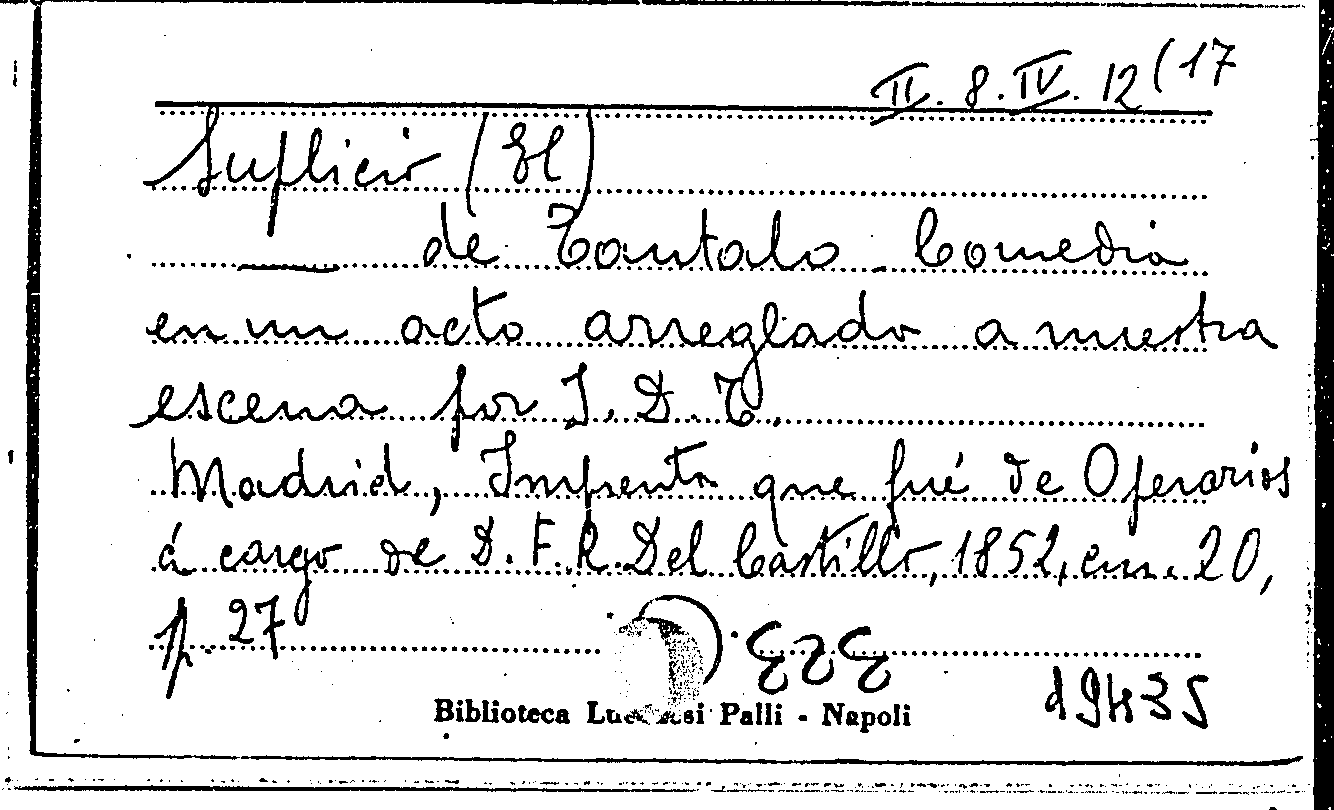 II. 8. IV. 12 (17
Suplicio (El)
—— de Tantalo. Comedia
en un acto arreglado a nuestra
escena por J. D. T.
Madrid, Imprenta que fué de Operarios
á cargo de D. F. R. Del Castillo, 1852, cm. 20,
p. 27
Biblioteca Lucchesi Palli - Napoli
19435